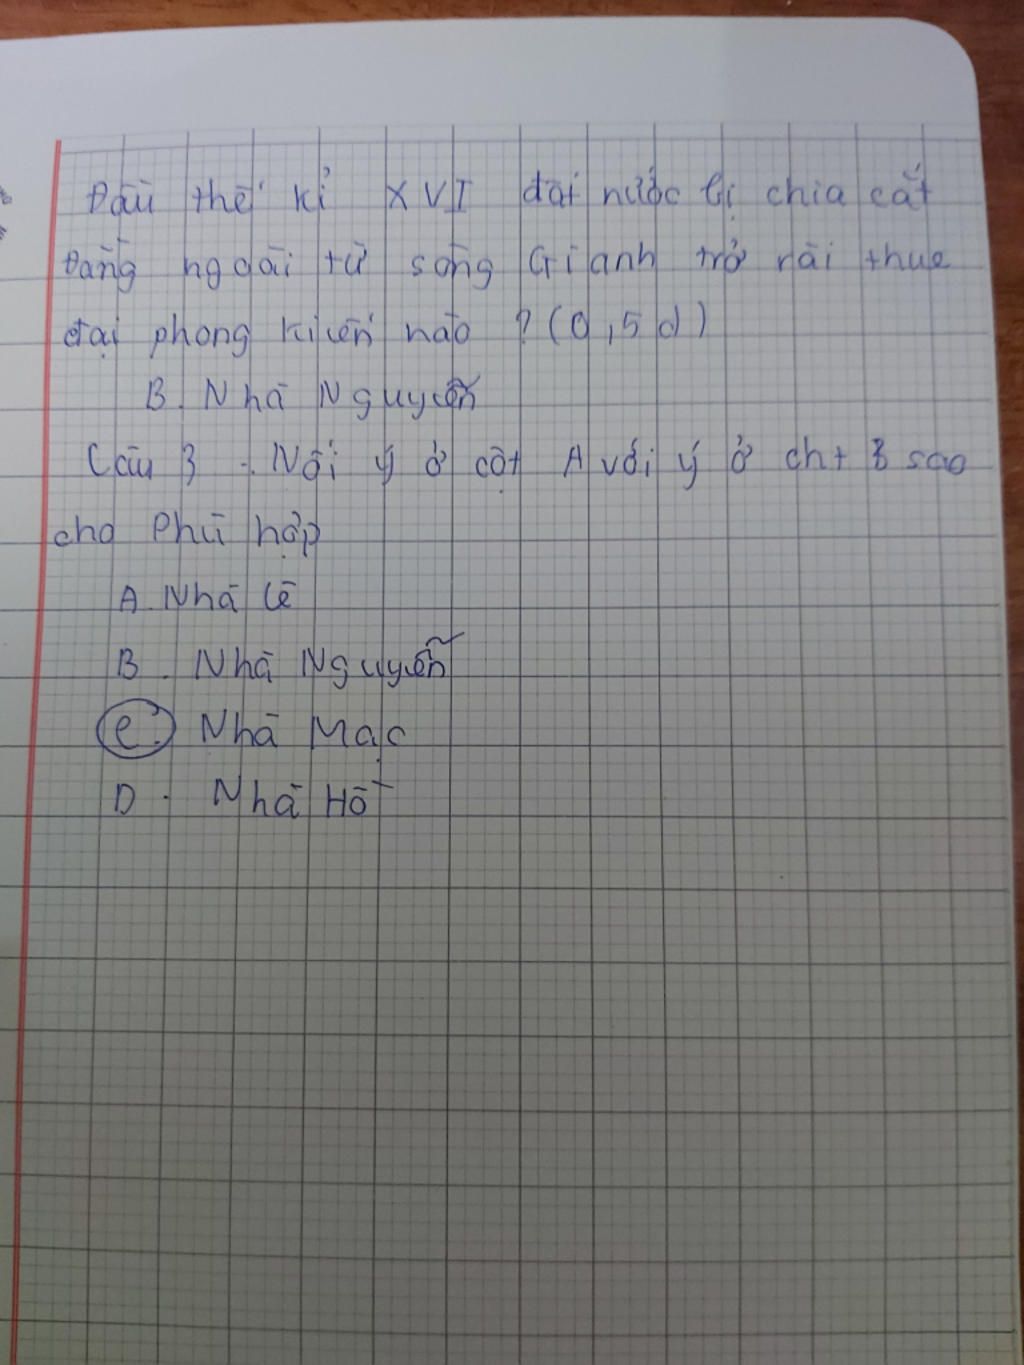 Đầu thế kỉ XVI đất nước bị chia cắt
Đằng ngoài từ sông Gianh trở rài thuộc
đại phong kiến nào ? (0,5 đ)
B. Nhà Nguyễn
Câu 3 . Nối ý ở cột A với ý ở cht B sao
cho Phù hợp
A. Nhà Lê
B. Nhà Nguyễn
C. Nhà Mạc
D. Nhà Hồ